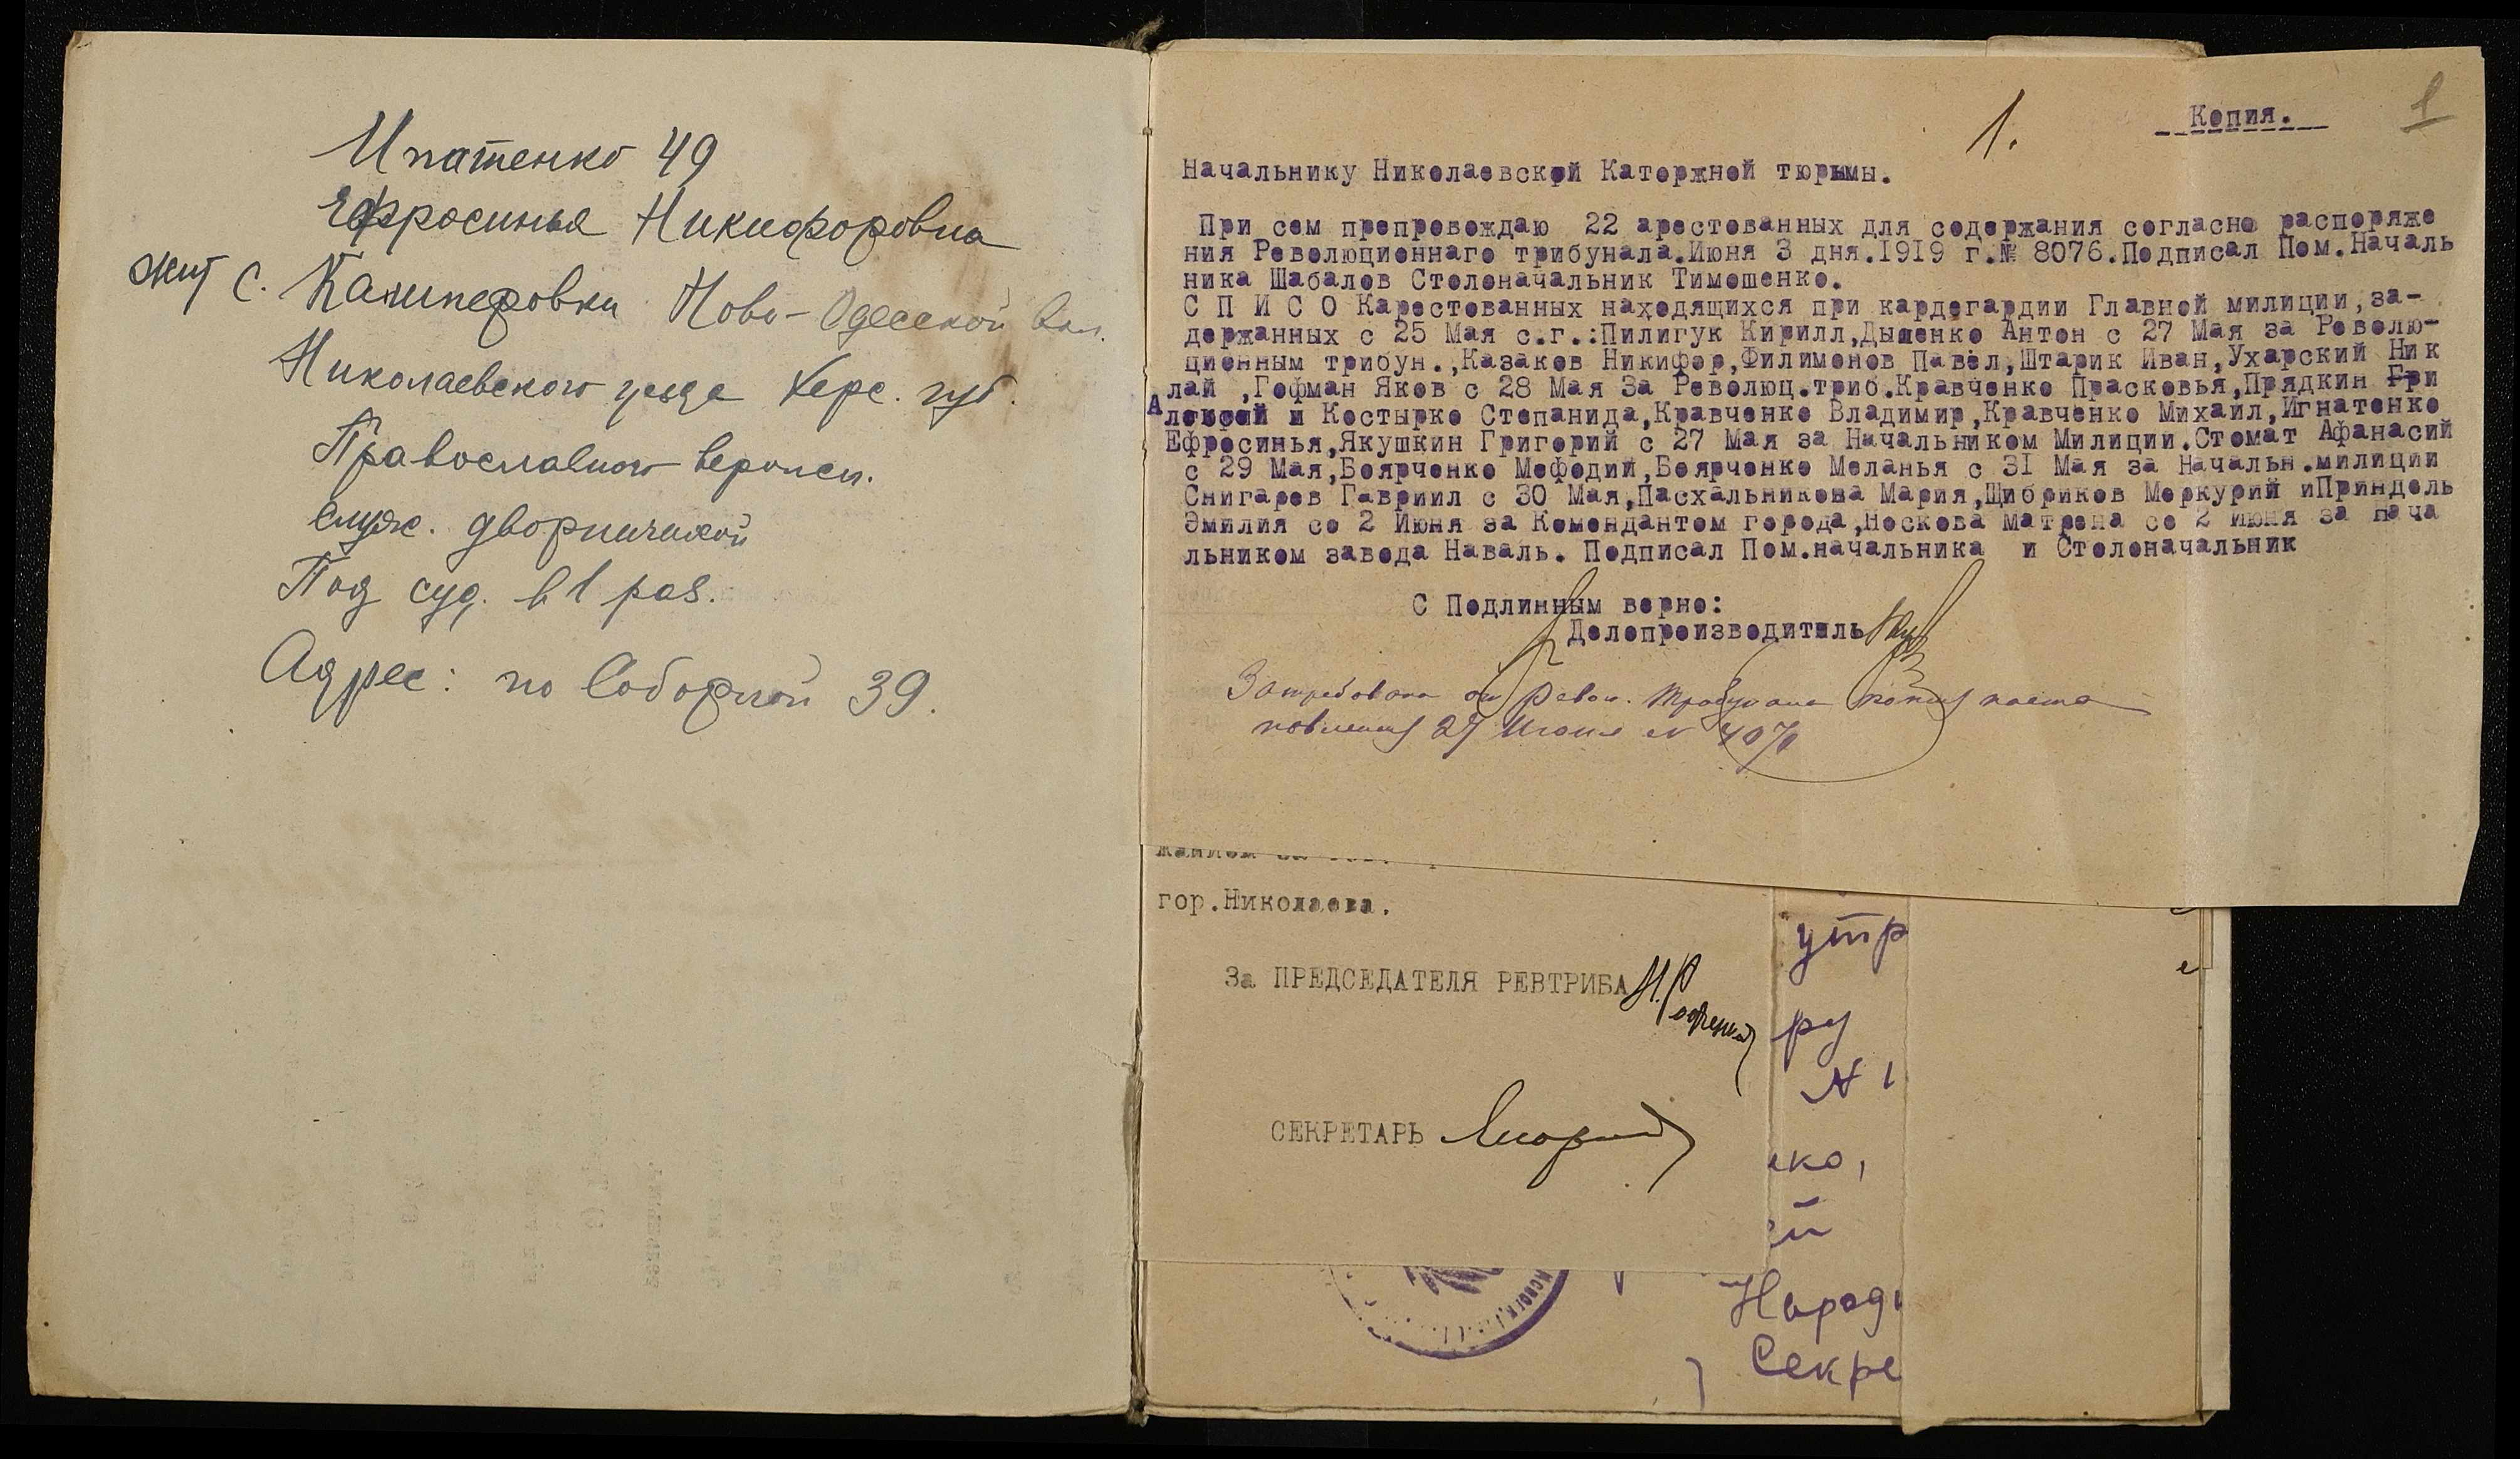 Ипатенко 49
Ефросинья Никифоровна
жит с. Касперовки Ново-Одесской вол.
Николаевского уезда Херс. губ.
Православного вероисп.
служ. дворничихой
Под суд. в 1 раз.
Адрес: по Соборной 39.
1
1.
Копия.
Начальнику Николаевской Каторжной тюрьмы.
При сем препровождаю 22 арестованных для содержания согласно распоряже
ния Революционнаго трибунала.Июня 3 дня.1919 г.№ 8076.Подписал Пом.Началь
ника Шабалов Столоначальник Тимошенко.
С П И С О Карестованных находящихся при кардегардии Главной милиции,за-
держанных с 25 Мая с.г.:Пилигук Кирилл,Дыменко Антон с 27 Мая за Револю-
ционным трибун.,Казаков Никифор,Филимонов Павел,Штарик Иван,Ухарский Ник
лай ,Гофман Яков с 28 Мая За Революц.триб.Кравченко Прасковья,Прядкин Гри
и Костырко Степанида,Кравченко Владимир,Кравченко Михаил,Игнатенко
Ефросинья,Якушкин Григорий с 27 Мая за Начальником Милиции.Стомат Афанасий
с 29 Мая,Боярченко Мефодий,Боярченко Меланья с 31 Мая за Начальн.милиции
Снигарев Гавриил с 30 Мая,Пасхальникова Мария,Щибриков Меркурий иПриндель
Эмилия со 2 Июня за Комендантом города,Носкова Матрена со 2 Июня за Нача
льником завода Наваль. Подписал Пом.начальника и Столоначальник
С Подлинным верно:
Делопроизводитель
Затребована от Револ. Трибунала копия поста
новления 27 Июня № 4070
гор.Николаева.
За ПРЕДСЕДАТЕЛЯ РЕВТРИБА
СЕКРЕТАРЬ
утр
ру
№ 1
ко,
й
Народ
Секре